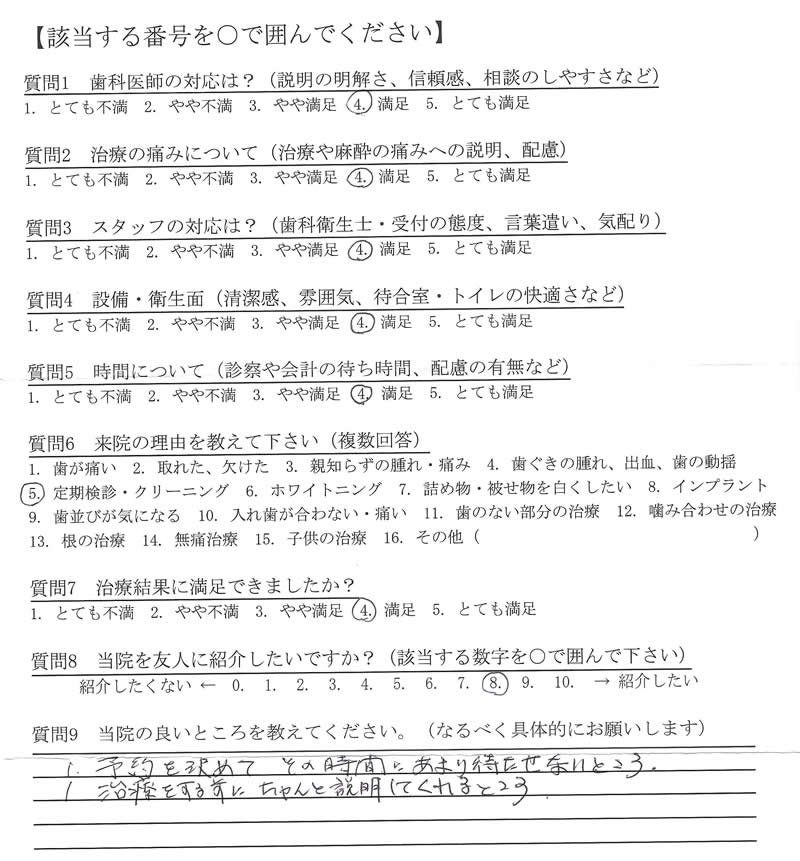 【該当する番号を〇で囲んでください】
質問1 歯科医師の対応は？（説明の明解さ、信頼感、相談のしやすさなど）
1. とても不満 2. やや不満 3. やや満足 4. 満足 5. とても満足
質問2 治療の痛みについて（治療や麻酔の痛みへの説明、配慮）
1. とても不満 2. やや不満 3. やや満足 4. 満足 5. とても満足
質問3 スタッフの対応は？（歯科衛生士・受付の態度、言葉遣い、気配り）
1. とても不満 2. やや不満 3. やや満足 4. 満足 5. とても満足
質問4 設備・衛生面（清潔感、雰囲気、待合室・トイレの快適さなど）
1. とても不満 2. やや不満 3. やや満足 4. 満足 5. とても満足
質問5 時間について（診察や会計の待ち時間、配慮の有無など）
1. とても不満 2. やや不満 3. やや満足 4. 満足 5. とても満足
質問6 来院の理由を教えて下さい（複数回答）
1. 歯が痛い 2. 取れた、欠けた 3. 親知らずの腫れ・痛み 4. 歯ぐきの腫れ、出血、歯の動揺
5. 定期検診・クリーニング 6. ホワイトニング 7. 詰め物・被せ物を白くしたい 8. インプラント
9. 歯並びが気になる 10. 入れ歯が合わない・痛い 11. 歯のない部分の治療 12. 噛み合わせの治療
13. 根の治療 14. 無痛治療 15. 子供の治療 16. その他（ ）
質問7 治療結果に満足できましたか？
1. とても不満 2. やや不満 3. やや満足 4. 満足 5. とても満足
質問8 当院を友人に紹介したいですか？（該当する数字を〇で囲んで下さい）
紹介したくない ← 0. 1. 2. 3. 4. 5. 6. 7. 8. 9. 10. → 紹介したい
質問9 当院の良いところを教えてください。（なるべく具体的にお願いします）
1. 予約を決めて その時間にあまり待たせないところ.
1 治療をする前に ちゃんと説明してくれるところ